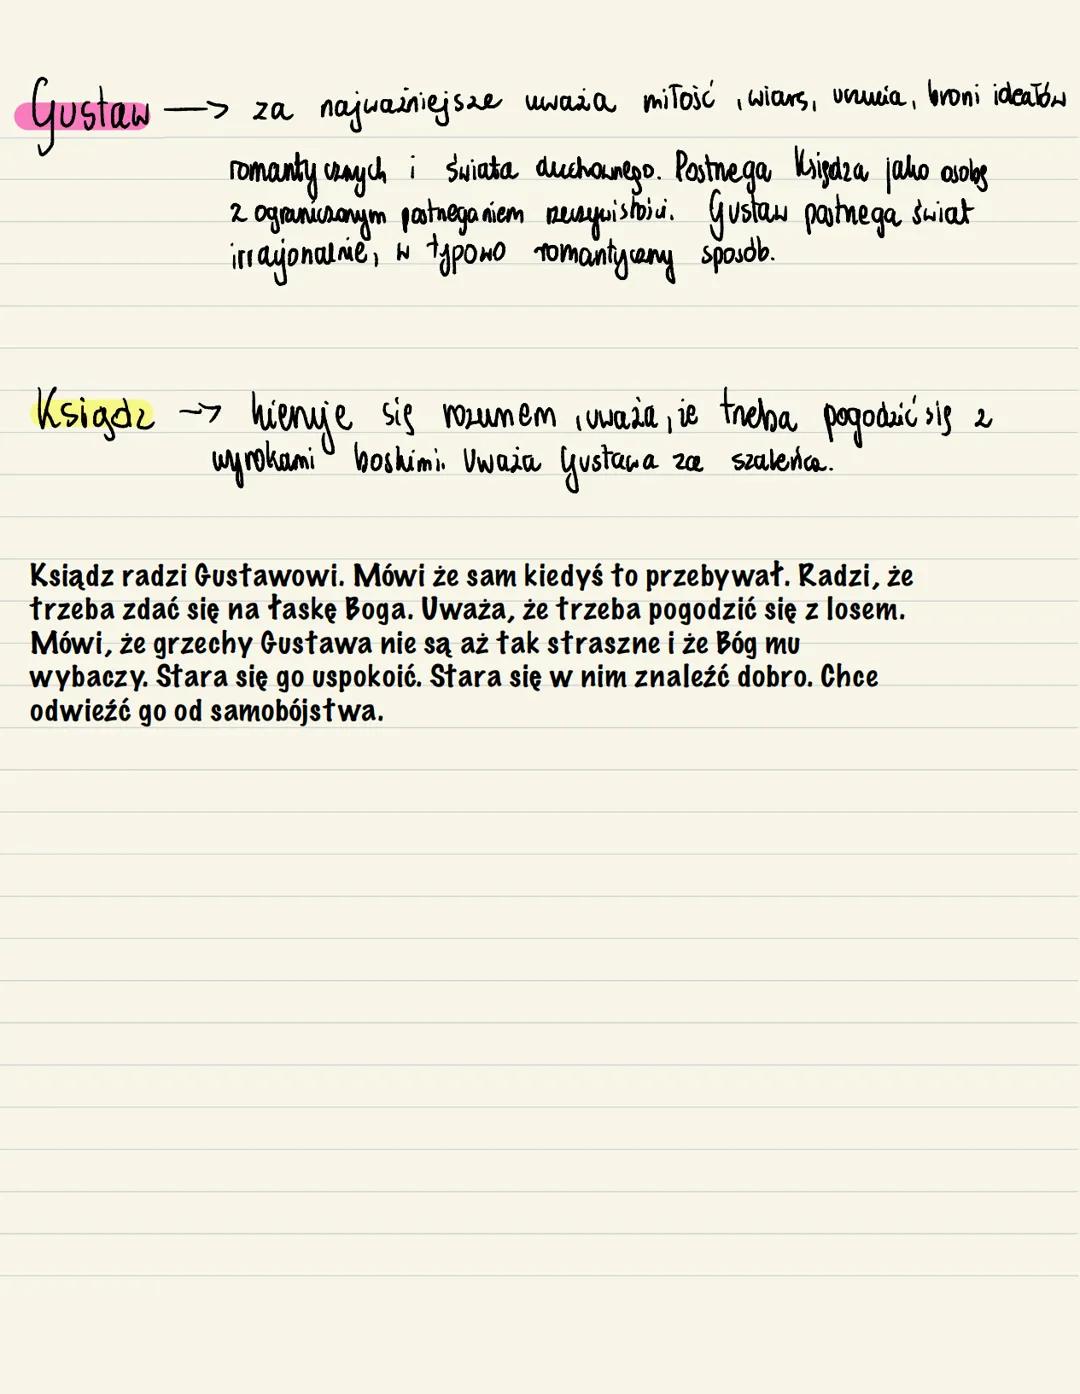 Gustaw —> za najważniejsze uważa miłość, wiarę, uczucia, broni ideałów
romantycznych i świata duchownego. Postrzega Księdza jako osobę
z ograniczonym postrzeganiem rzeczywistości. Gustaw postrzega świat
irracjonalnie, w typowo romantyczny sposób.
Ksiądz -> kieruje się rozumem, uważa, że trzeba pogodzić się z
wyrokami boskimi. Uważa Gustawa za szaleńca.
Ksiądz radzi Gustawowi. Mówi że sam kiedyś to przebywał. Radzi, że
trzeba zdać się na łaskę Boga. Uważa, że trzeba pogodzić się z losem.
Mówi, że grzechy Gustawa nie są aż tak straszne i że Bóg mu
wybaczy. Stara się go uspokoić. Stara się w nim znaleźć dobro. Chce
odwieźć go od samobójstwa.